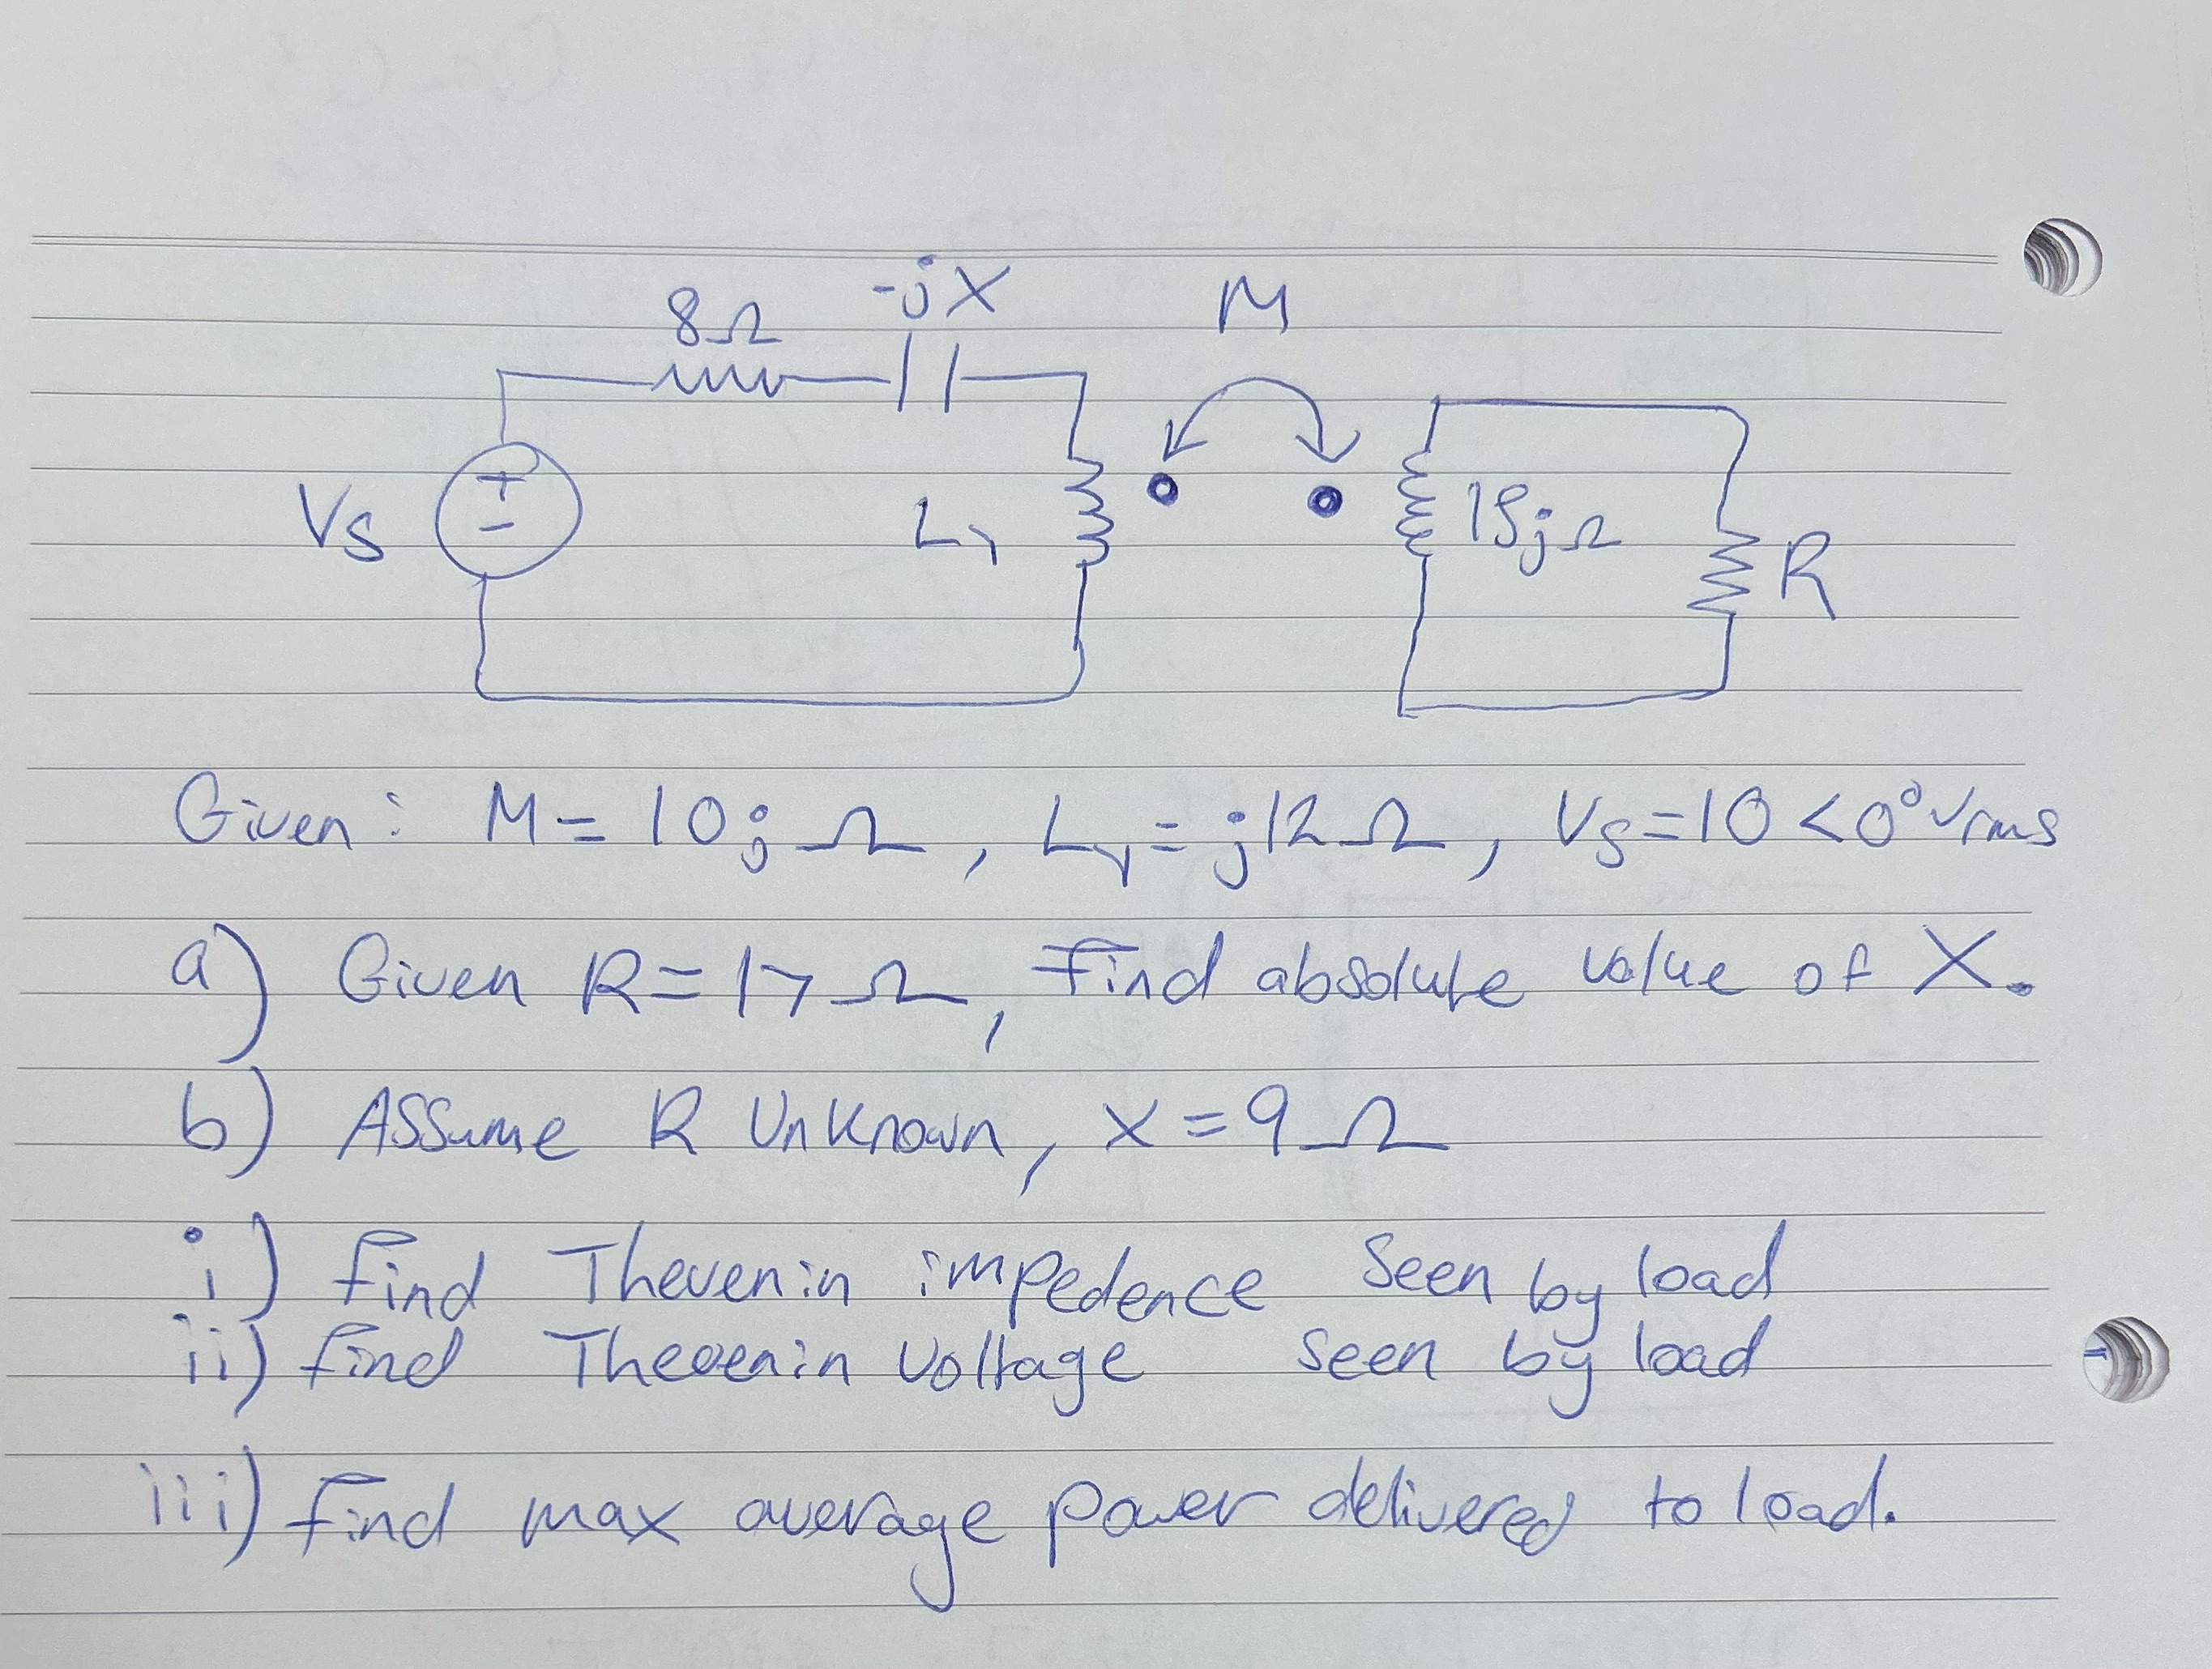 -jX
8Ω
M
Vs
L₁
15jΩ
R
Given: M = 10j Ω, L₁ = j12 Ω, Vs = 10 < 0° Vrms
a) Given R = 17 Ω, Find absolute value of X.
b) Assume R Unknown, x = 9 Ω
i) find Thevenin impedence seen by load
ii) find Thevenin voltage seen by load
iii) find max average power delivered to load.